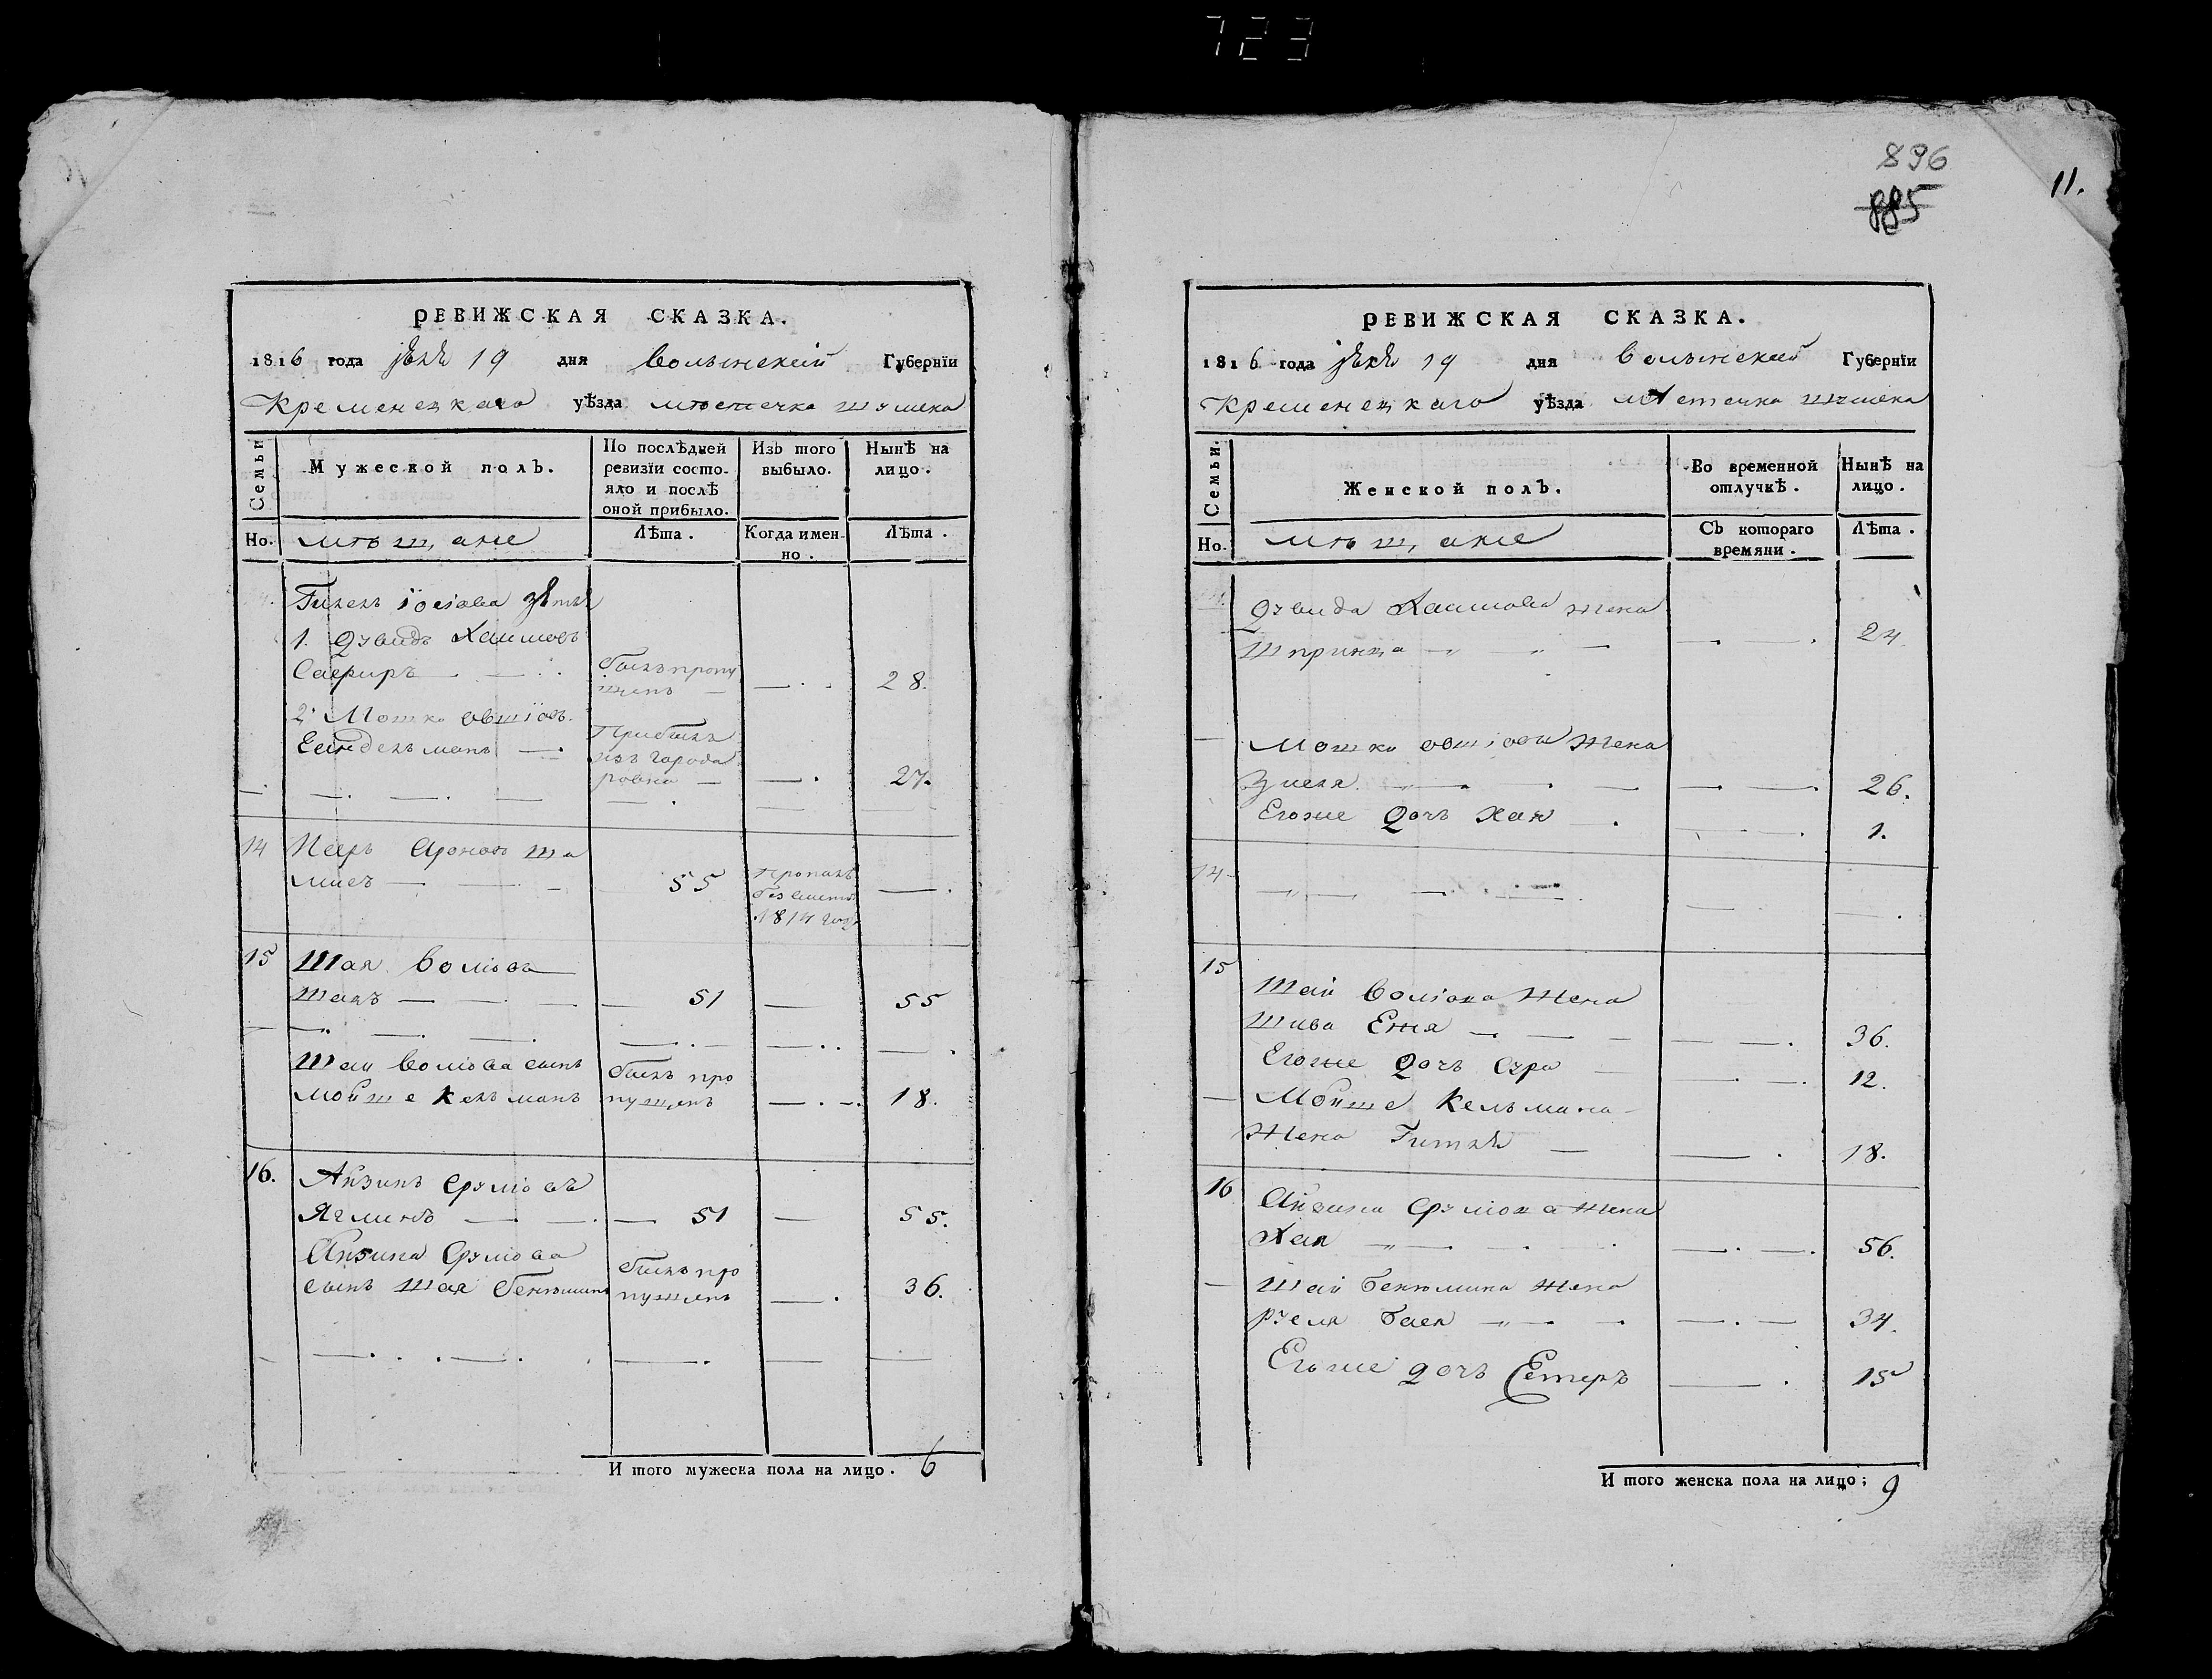 723
896
885
11.
РЕВИЖСКАЯ СКАЗКА.
1816 года 19 дня Волынской Губернїи
Кременецкаго уѣзда мѣстечка шумска
Семьи
Мужеской полъ.
По послѣдней
ревизїи состо-
яло и послѣ
оной прибыло.
Изъ того
выбыло.
Нынѣ на
лицо.
Но.
мѣщане
Лѣта.
Когда имен-
но.
Лѣта.
зять
1. Дувидъ Хаимовъ
Сапфиръ
былъ пропу
щенъ
28.
2. Мошко овшїовъ
прибылъ
изъ города
ровна
27.
14 Аронов ша
мисъ
55
пропалъ
без
1814 году
15 Шая Волїовъ
51
55
Шаи Волїова сынъ
мойше Келманъ
былъ про
пущенъ
18.
16. Айзикъ Срулїовъ
51
55.
Айзика Срулїова
сынъ Шая бенюминъ
былъ про
пущенъ
36.
И того мужеска пола на лицо. 6
РЕВИЖСКАЯ СКАЗКА.
1816 года 19 дня Волынской Губернїи
Кременецкаго уѣзда мѣстечка шумска
Семьи.
Женской полъ.
Во временной
отлучкѣ.
Нынѣ на
лицо.
Но.
мѣщане
Съ котораго
времяни.
Лѣта.
Дувида Хаимова жена
Шпринца
24
Мошка овшїова жена
26.
Егоже дочъ Хая
1.
14
15
Шаи Волїова жена
Шива Еня
36.
Егоже дочъ Сура
12.
Мойше Кельмана
жена Гитля
18.
16
Айзика Срулїова жена
Хая
56.
Шаи бенюмина жена
бася
34.
Егоже дочъ Естеръ
15
И того женска пола на лицо; 9